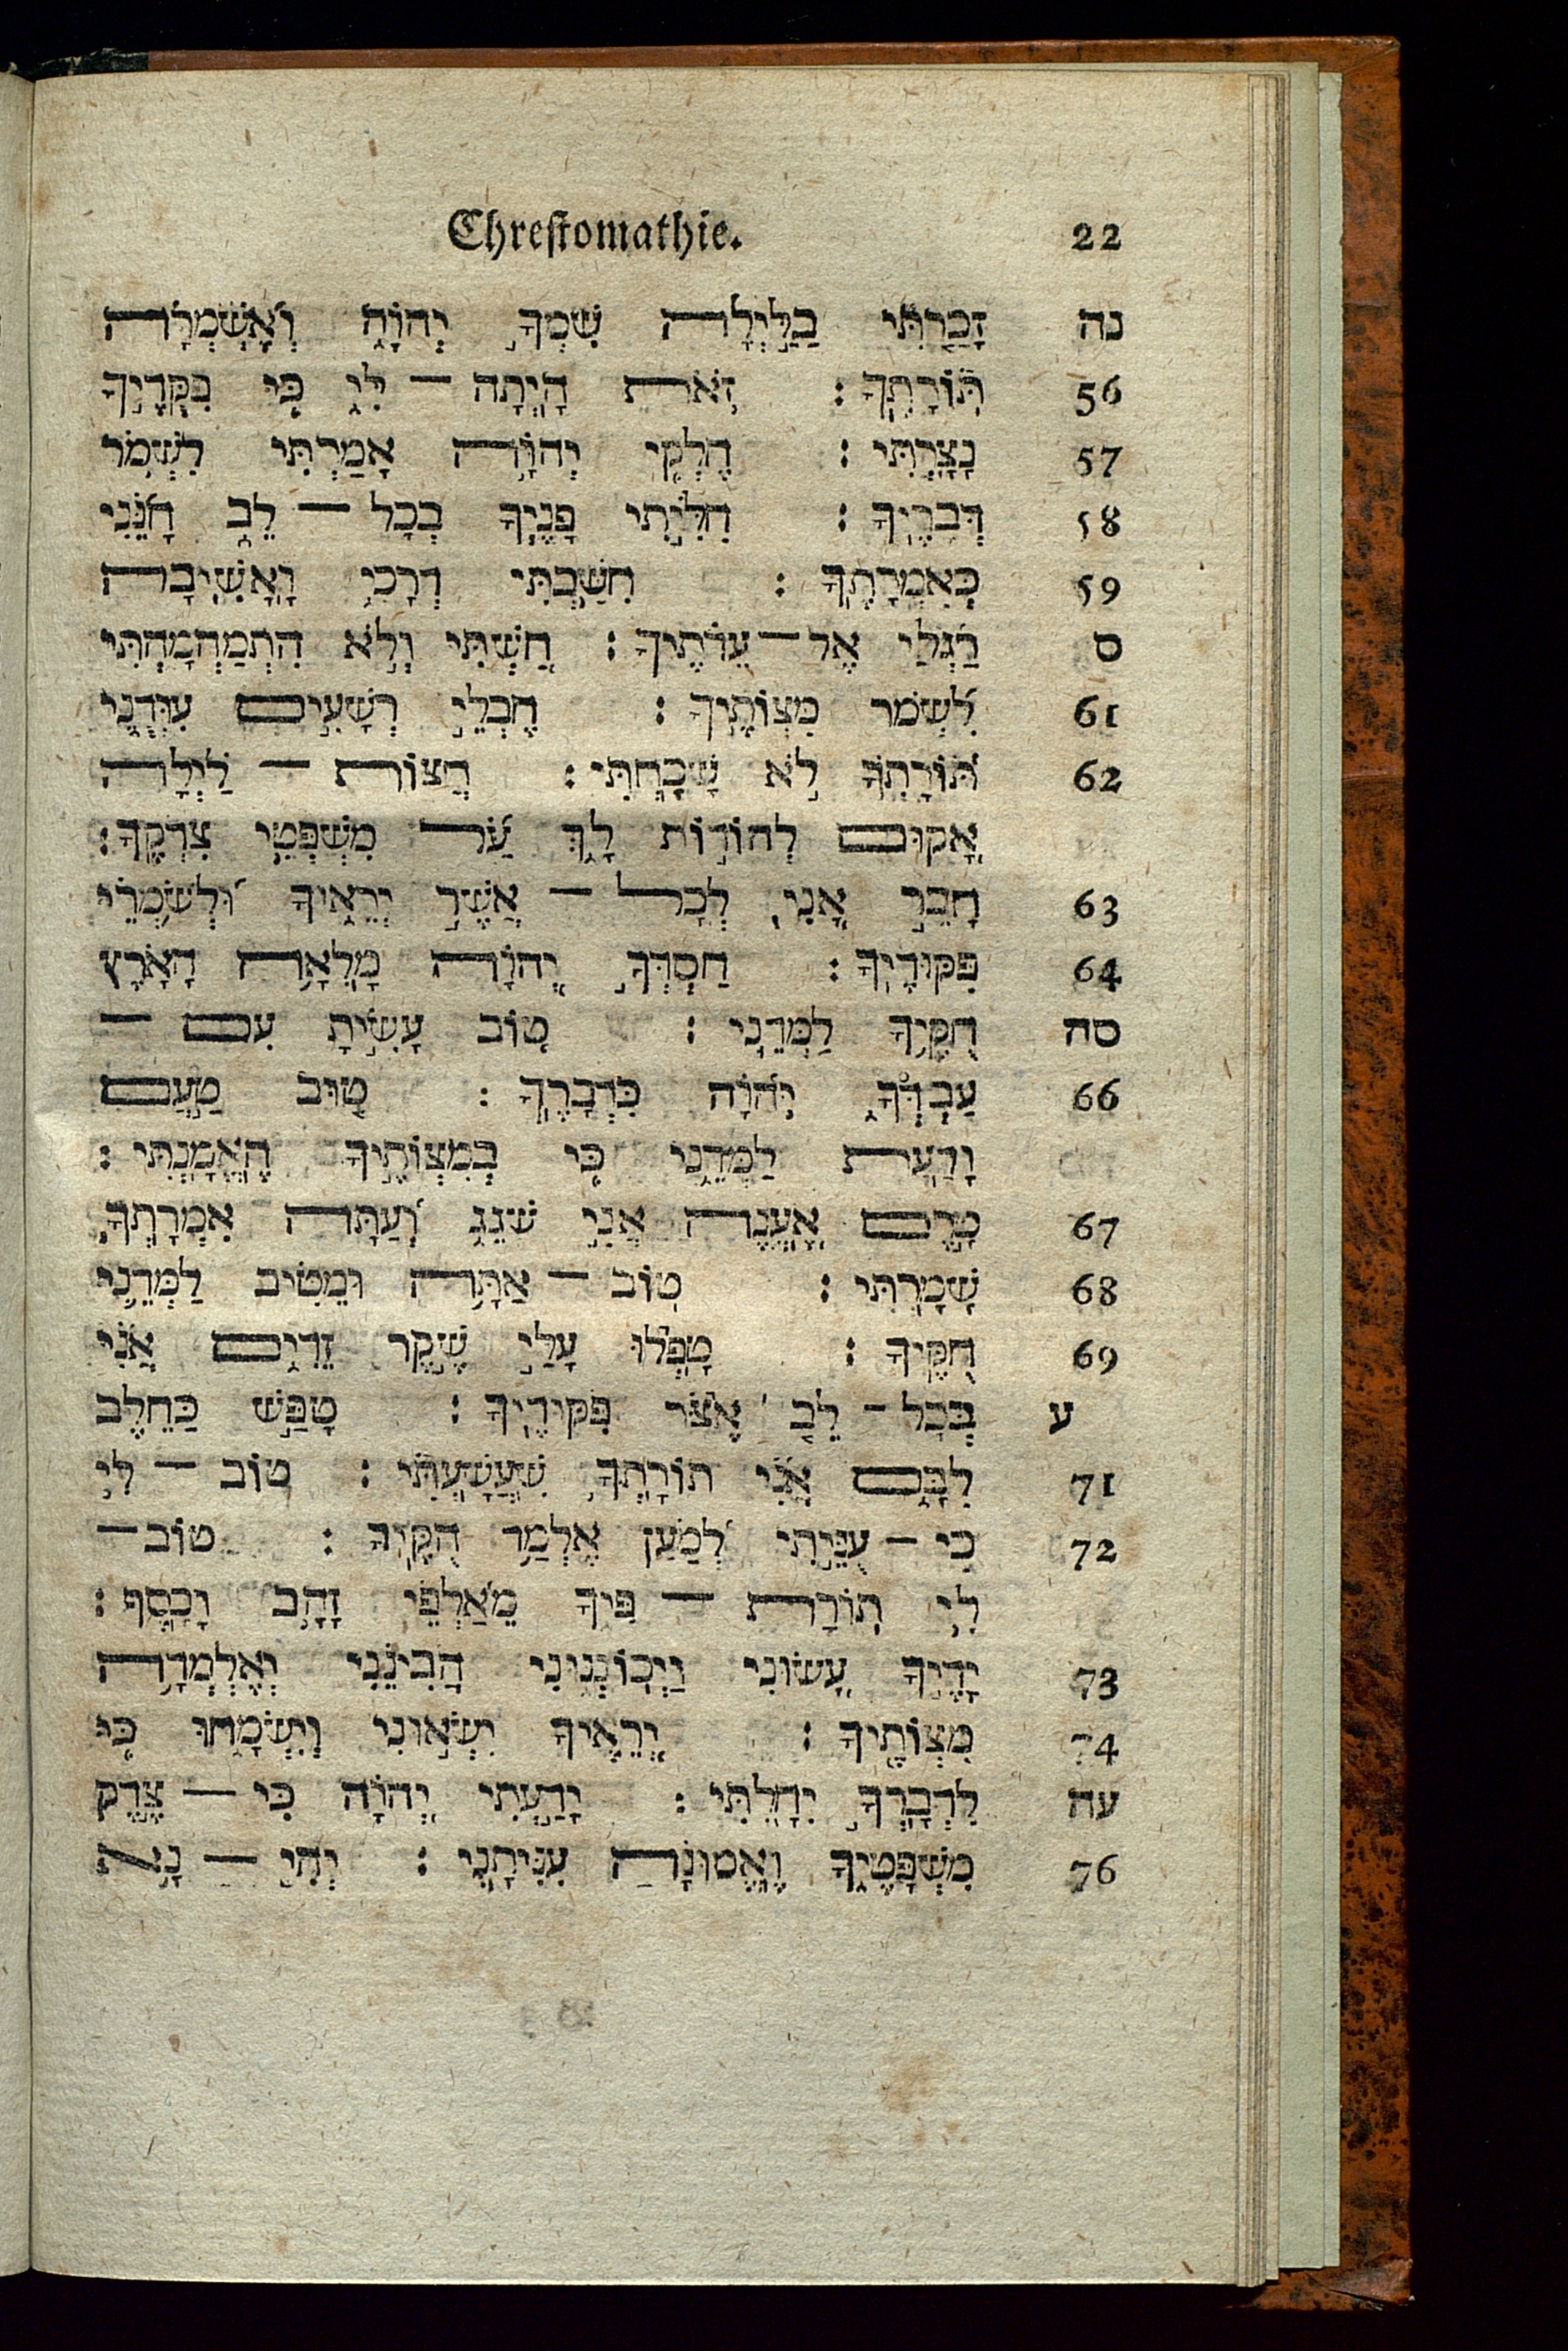 Chrestomathie. 22
נה זָכַרְתִּי בַלַּיְלָה שִׁמְךָ יְהוָה וָאֶשְׁמְרָה
56 תּוֹרָתֶךָ : זֹאת הָיְתָה־לִּי כִּי פִקֻּדֶיךָ
57 נָצָרְתִּי : חֶלְקִי יְהוָה אָמַרְתִּי לִשְׁמֹר
58 דְּבָרֶיךָ : חִלִּיתִי פָנֶיךָ בְכָל־לֵב חָנֵּנִי
59 כְּאִמְרָתֶךָ : חִשַּׁבְתִּי דְרָכָי וָאָשִׁיבָה
ס רַגְלַי אֶל־עֵדֹתֶיךָ : חַשְׁתִּי וְלֹא הִתְמַהְמָהְתִּי
61 לִשְׁמֹר מִצְוֹתֶיךָ : חֶבְלֵי רְשָׁעִים עִוְּדֻנִי
62 תּוֹרָתְךָ לֹא שָׁכָחְתִּי : חֲצוֹת־לַיְלָה
אָקוּם לְהוֹדוֹת לָךְ עַל מִשְׁפְּטֵי צִדְקֶךָ :
63 חָבֵר אָנִי לְכָל־אֲשֶׁר יְרֵאוּךָ וּלְשֹׁמְרֵי
64 פִּקּוּדֶיךָ : חַסְדְּךָ יְהוָה מָלְאָה הָאָרֶץ
סה חֻקֶּיךָ לַמְּדֵנִי : טוֹב עָשִׂיתָ עִם־
66 עַבְדְּךָ יְהוָה כִּדְבָרֶךָ : טוּב טַעַם
וָדַעַת לַמְּדֵנִי כִּי בְמִצְוֹתֶיךָ הֶאֱמָנְתִּי :
67 טֶרֶם אֶעֱנֶה אֲנִי שֹׁגֵג וְעַתָּה אִמְרָתְךָ
68 שָׁמָרְתִּי : טוֹב־אַתָּה וּמֵטִיב לַמְּדֵנִי
69 חֻקֶּיךָ : טָפְלוּ עָלַי שֶׁקֶר זֵדִים אֲנִי
ע בְּכָל־לֵב אֶצֹּר פִּקּוּדֶיךָ : טָפַשׁ כַּחֵלֶב
71 לִבָּם אֲנִי תּוֹרָתְךָ שִׁעֲשָׁעְתִּי : טוֹב־לִי
72 כִי־עֻנֵּיתִי לְמַעַן אֶלְמַד חֻקֶּיךָ : טוֹב־
לִי תוֹרַת־פִּיךָ מֵאַלְפֵי זָהָב וָכָסֶף :
73 יָדֶיךָ עָשׂוּנִי וַיְכוֹנְנוּנִי הֲבִינֵנִי וְאֶלְמְדָה
74 מִצְוֹתֶיךָ : יְרֵאֶיךָ יִרְאוּנִי וְיִשְׂמָחוּ כִּי
עה לִדְבָרְךָ יִחָלְתִּי : יָדַעְתִּי יְהוָה כִּי־צֶדֶק
76 מִשְׁפָּטֶיךָ וֶאֱמוּנָה עִנִּיתָנִי : יְהִי־נָא